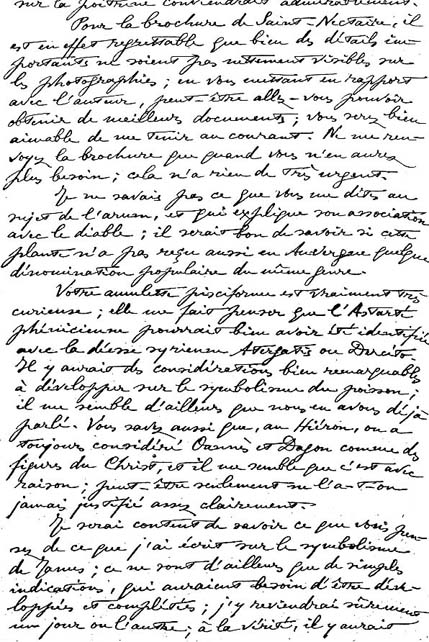 sur la poitrine conviendrait admirablement.
Pour la brochure de Saint-Nectaire, il
est en effet regrettable que bien des détails im-
portants ne soient pas nettement visibles sur
les photographies ; en vous mettant en rapport
avec l'auteur, peut-être allez-vous pouvoir
obtenir de meilleurs documents ; vous serez bien
aimable de me tenir au courant. Ne me ren-
voyez la brochure que quand vous n'en aurez
plus besoin ; cela n'a rien de très urgent.
Je ne savais pas ce que vous me dites au
sujet de l'arum, et qui explique son association
avec le diable ; il serait bon de savoir si cette
plante n'a pas reçu aussi en Auvergne quelque
dénomination populaire du même genre.
Votre amulette pisciforme est vraiment très
curieuse ; elle me fait penser que l'Astarté
phénicienne pourrait bien avoir été identifiée
avec la déesse syrienne Atergatis ou Derceto.
Il y aurait des considérations bien remarquables
à développer sur le symbolisme du poisson ;
il me semble d'ailleurs que nous en avons déjà
parlé. Vous savez aussi que, au Hiéron, on a
toujours considéré Oannès et Dagon comme des
figures du Christ, et il me semble que c'est avec
raison ; peut-être seulement ne l'a-t-on
jamais justifié assez clairement.
Je serai content de savoir ce que vous pen-
sez de ce que j'ai écrit sur le symbolisme
de Janus ; ce ne sont d'ailleurs que de simples
indications, qui auraient besoin d'être déve-
loppées et complétées ; j'y reviendrai sûrement
un jour ou l'autre ; à la vérité, il y aurait